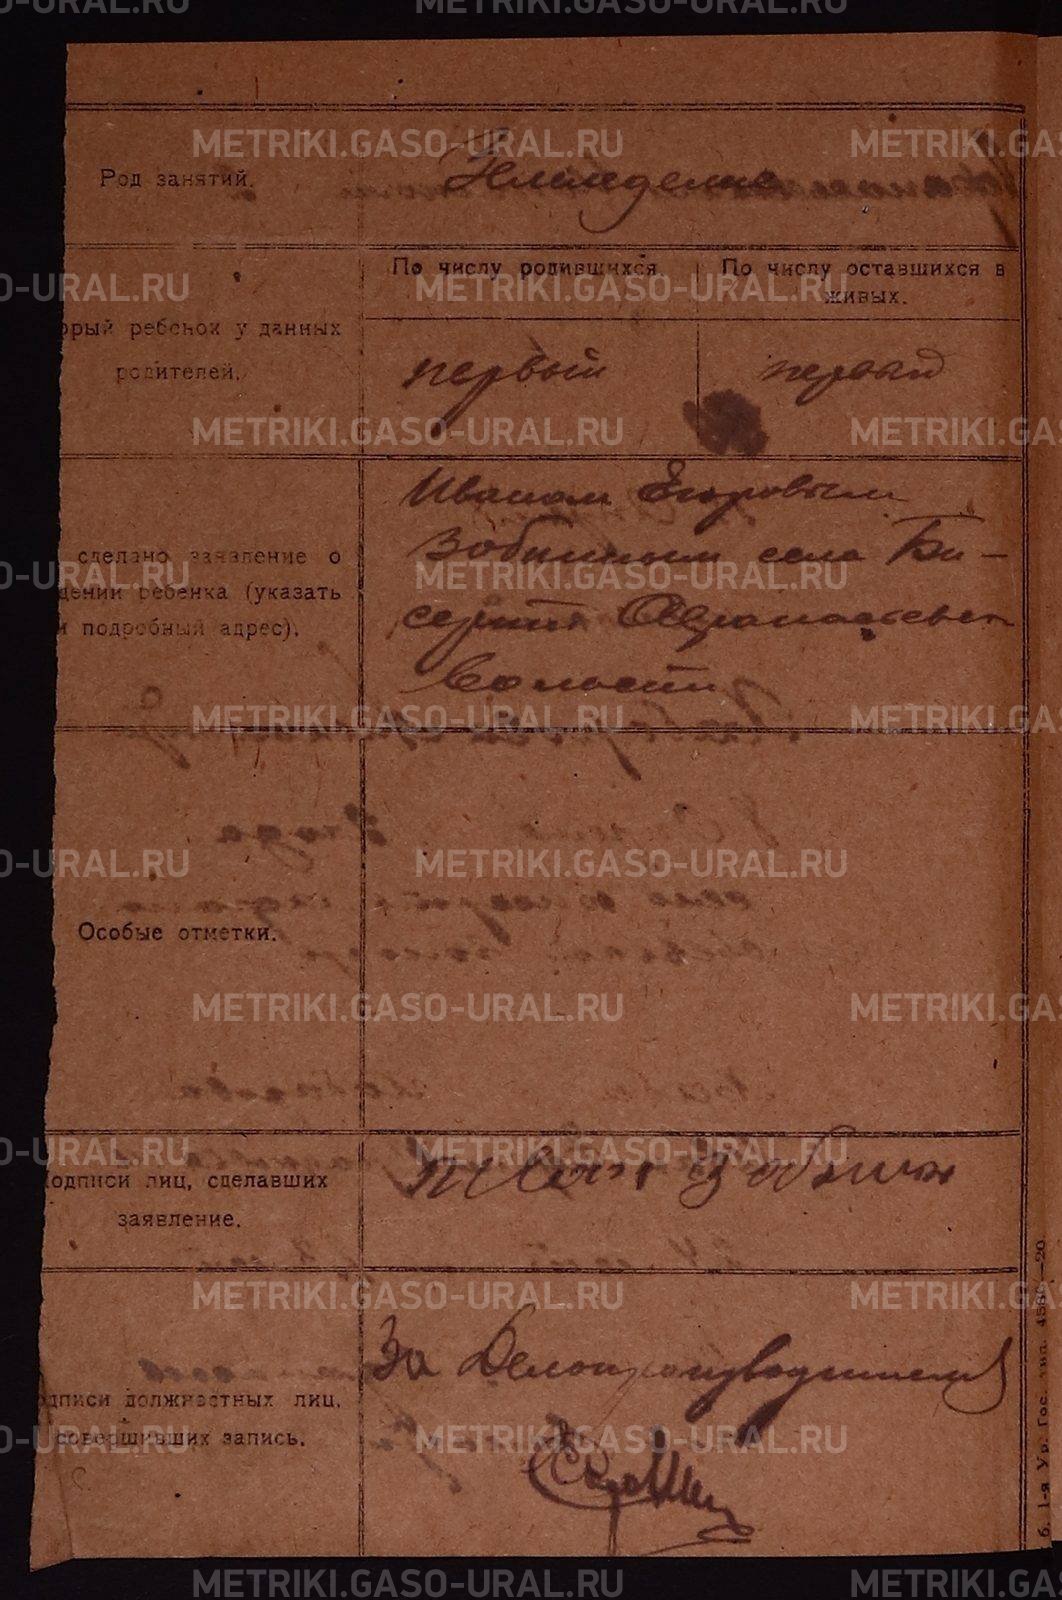 METRIKI.GASO-URAL.RU
Род занятий.
Земледелие
По числу родившихся.
По числу оставшихся в
живых.
орый ребенок у данных
родителей.
первый
первый
сделано заявление о
дении ребенка (указать
и подробный адрес).
Иваном Егоровым
Зобниным села Би-
серть Афанасьевск
волости
Особые отметки.
одписи лиц, сделавших
заявление.
Иван Зобнин
дписи должностных лиц,
совершивших запись.
За Делопроизводителя
б. 1-я Ур. Гос. тип.